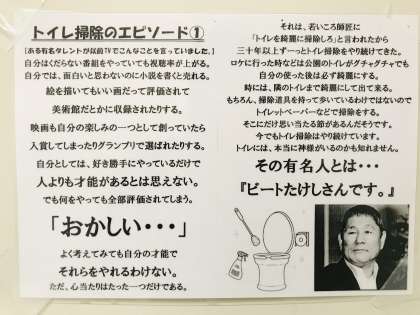 トイレ掃除のエピソード①
【ある有名タレントが以前TVでこんなことを言っていました。】
自分はくだらない番組をやっていても視聴率が上がる。
自分では、面白いと思わないのに小説を書くと売れる。
絵を描いてもいい画だって評価されて
美術館だかに収録されたりする。
映画も自分の楽しみの一つとして創っていたら
入賞してしまったりグランプリで選ばれたりする。
自分としては、好き勝手にやっているだけで
人よりも才能があるとは思えない。
でも何をやっても全部評価されてしまう。
「おかしい・・・」
よく考えてみても自分の才能で
それらをやれるわけない。
ただ、心当たりはたった一つだけである。
それは、若いころ師匠に
「トイレを綺麗に掃除しろ」と言われたから
三十年以上ずーっとトイレ掃除をやり続けてきた。
ロケに行った時などは公園のトイレがグチャグチャでも
自分の使った後は必ず綺麗にする。
時には、隣のトイレまで綺麗にして出て来る。
もちろん、掃除道具を持って歩いているわけではないので
トイレットペーパーなどで掃除をする。
そこにだけ思い当たる節があるんだそうです。
今でもトイレ掃除はやり続けています。
トイレには、本当に神様がいるのかも知れません。
その有名人とは・・・
『ビートたけしさんです。』